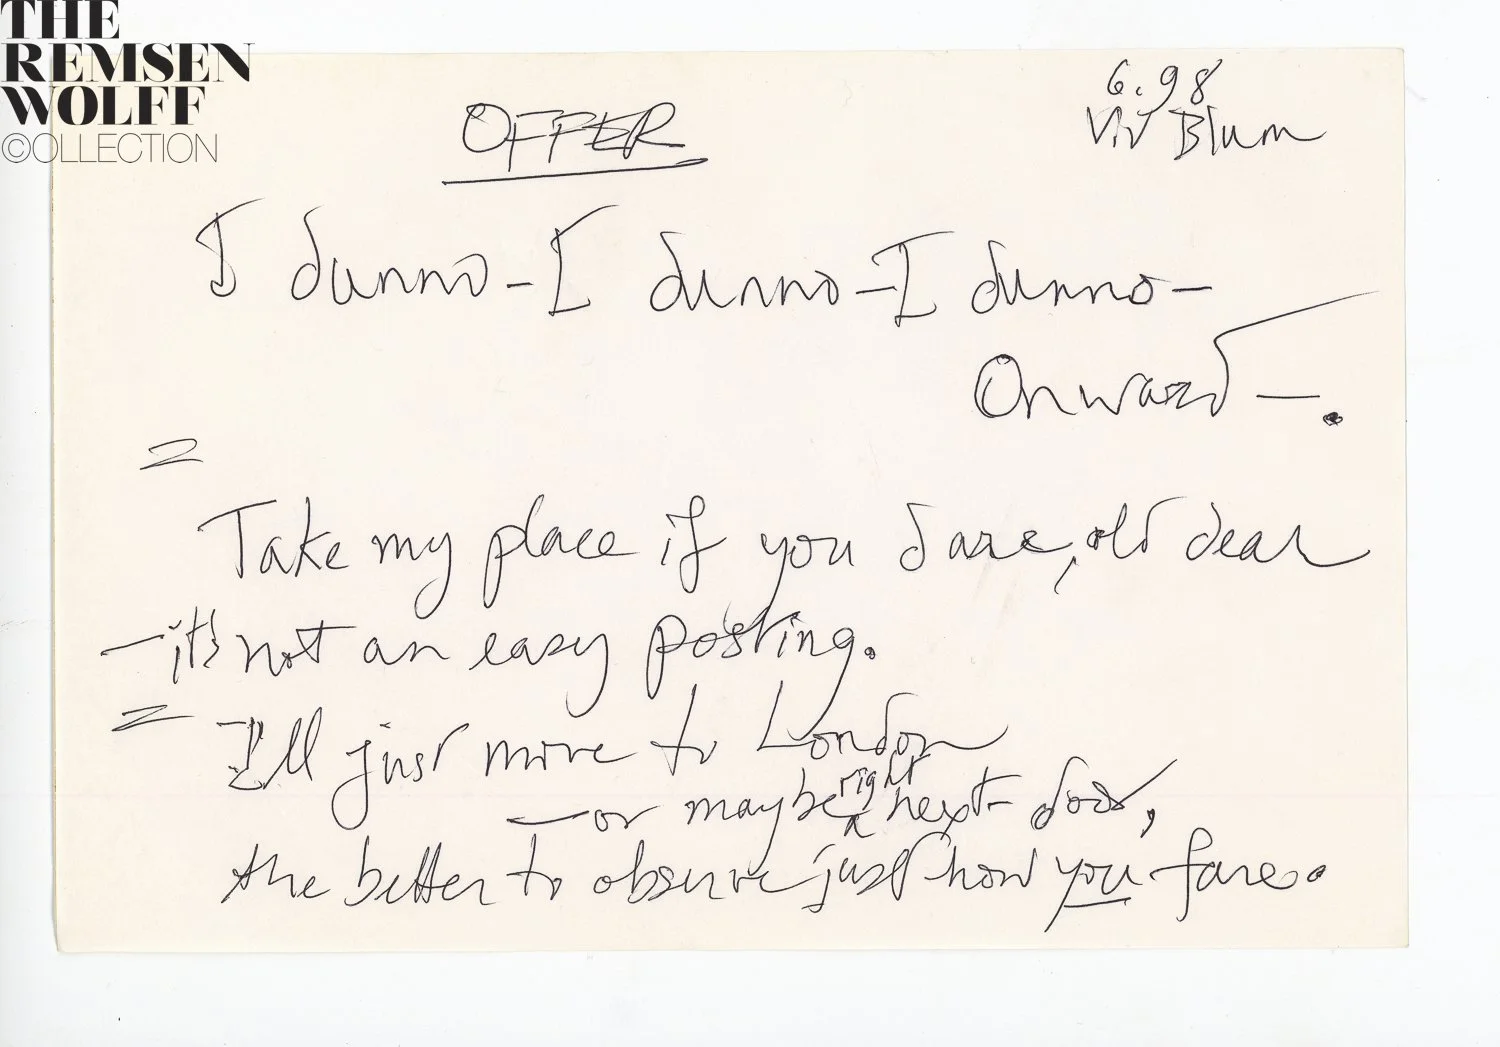 THE
REMSEN
WOLFF
©OLLECTION
6.98
Viv Blum
OFFER
I dunno - I dunno - I dunno -
Onward - .
=
Take my place if you dare, old dear
- it's not an easy posting.
=
I'll just move to London
- or maybe right next door,
the better to observe just how you fare.